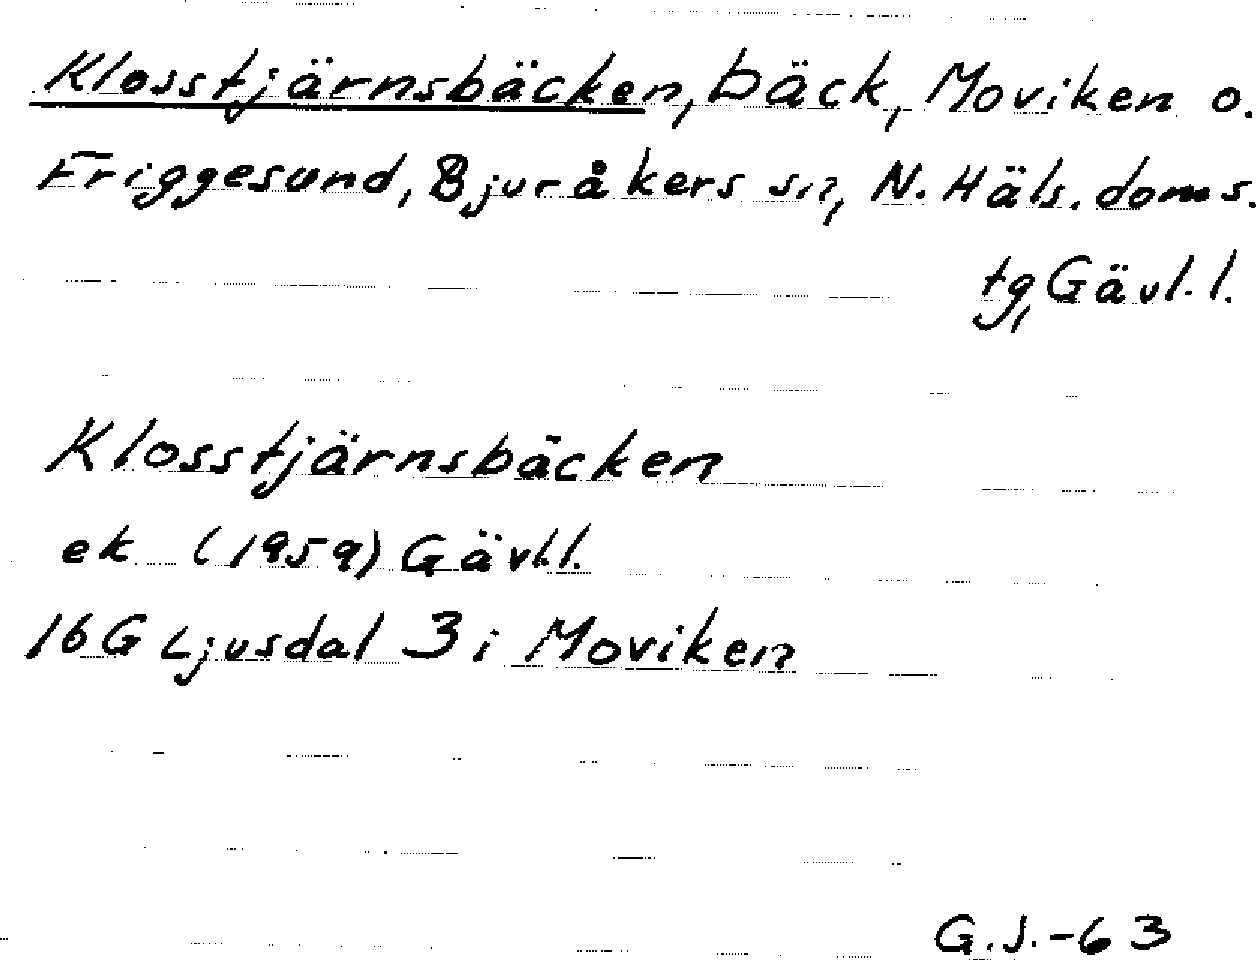 Klosstjärnsbäcken, bäck, Moviken o.
Friggesund, Bjuråkers sn, N. Häls. doms.
tg, Gävl. l.
Klosstjärnsbäcken
ek (1959) Gävl.l.
16G Ljusdal 3 i Moviken
G.J.-63